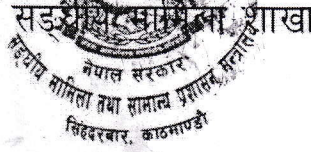 सङ्घीय मामिला शाखा
नेपाल सरकार
सङ्घीय मामिला तथा सामान्य प्रशासन मन्त्रालय
सिंहदरबार, काठमाण्डौ